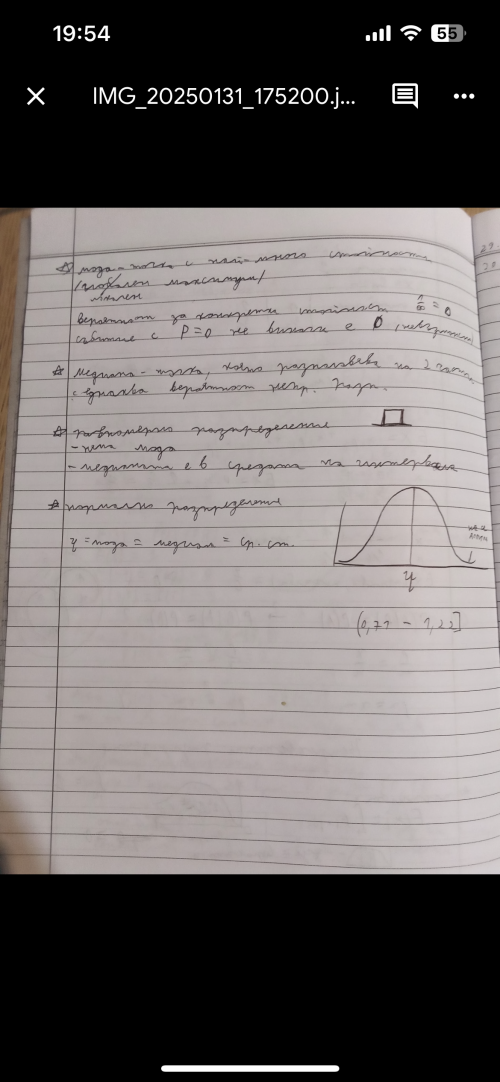 19:54
55
IMG_20250131_175200.j...
мода - точка с най-много стойности
/глобален максимум/
локален
вероятност за конкретна стойност n/∞ = 0
събитие с P=0 не винаги е 0
медиана - точка, която разполовява на 2 части
с еднаква вероятност непр. разп.
равномерно разпределение
- няма мода
- медианата е в средата на интервала
нормално разпределение
μ = мода = медиана = ср. ст.
μ
(0,71 - 1,22]
29
20